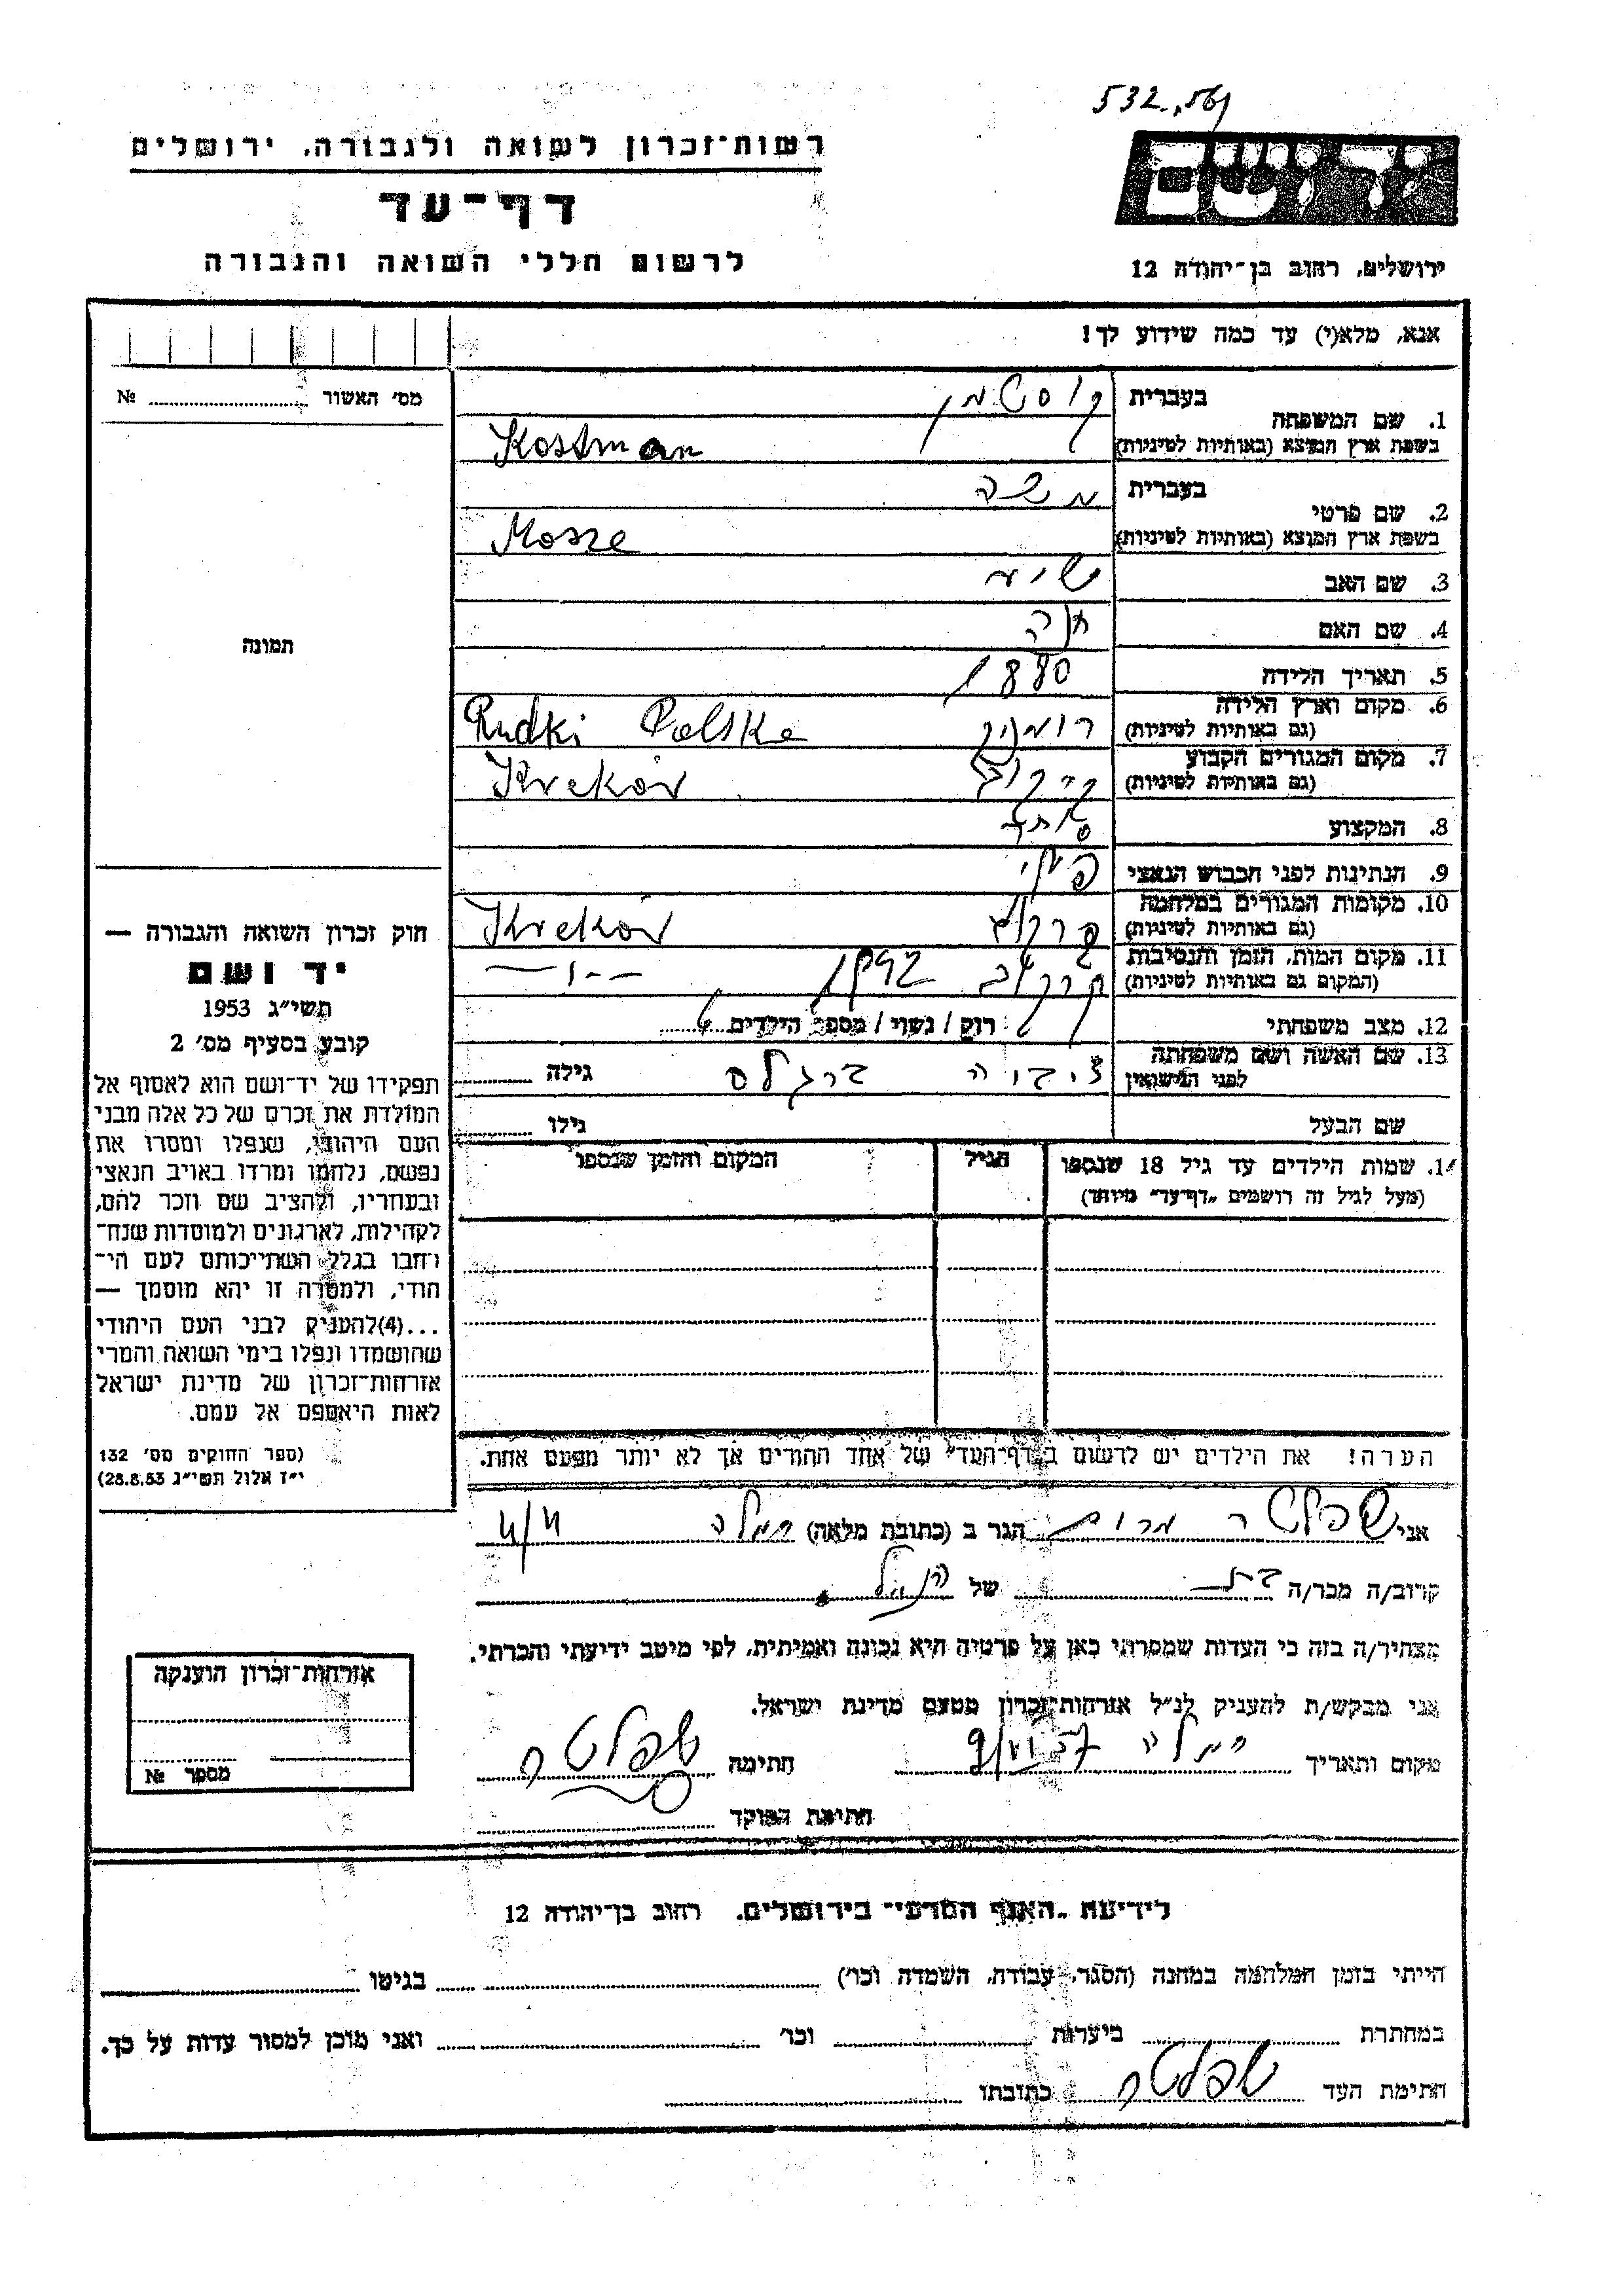 532.,561
רשות־זכרון לשואה ולגבורה, ירושלים
דף־עד
לרשום חללי השואה והגבורה
יד ושם
ירושלים, רחוב בן־יהודה 12
אנא, מלא(י) עד כמה שידוע לך!
מס׳ האשור № 
תמונה
1. שם המשפחה בעברית קוסטמן
בשפת ארץ המוצא (באותיות לטיניות) Kostman
2. שם פרטי בעברית משה
בשפת ארץ המוצא (באותיות לטיניות) Mosze
3. שם האב
4. שם האם חנה
5. תאריך הלידה 1880
6. מקום וארץ הלידה
(גם באותיות לטיניות) Rudki Polska
7. מקום המגורים הקבוע
(גם באותיות לטיניות) Kraków
8. המקצוע סוחר
9. הנתינות לפני הכבוש הנאצי
10. מקומות המגורים במלחמה
(גם באותיות לטיניות) קרקוב Kraków
11. מקום המות, הזמן והנסיבות
(המקום גם באותיות לטיניות) קרקוב 1942 —״—
12. מצב משפחתי רוק / נשוי / מספר הילדים
13. שם האשה ושם משפחתה
לפני הנישואין גילה
שם הבעל גילו
14. שמות הילדים עד גיל 18 שנספו
(מעל לגיל זה רושמים „דף־עד״ מיוחד)
הגיל
המקום והזמן שנספו
חוק זכרון השואה והגבורה —
יד ושם
תשי״ג 1953
קובע בסעיף מס׳ 2
תפקידו של יד־ושם הוא לאסוף אל
המולדת את זכרם של כל אלה מבני
העם היהודי, שנפלו ומסרו את
נפשם, נלחמו ומרדו באויב הנאצי
ובעוזריו, ולהציב שם וזכר להם,
לקהילות, לארגונים ולמוסדות שנח־
רחבו בגלל השתייכותם לעם הי־
הודי, ולמטרה זו יהא מוסמך —
...(4)להעניק לבני העם היהודי
שהושמדו ונפלו בימי השואה והמרי
אזרחות־זכרון של מדינת ישראל
לאות היאספם אל עמם.
(ספר החוקים מס׳ 132
י״ז אלול תשי״ג 28.8.53)
הערה! את הילדים יש לרשום ב„דף־העד״ של אחד ההורים אך לא יותר מפעם אחת.
אני שפלטר מרים הגר ב (כתובת מלאה) רמלה
קרוב/ה מכר/ה בת של הנ״ל
מצהיר/ה בזה כי העדות שמסרתי כאן על פרטיה היא נכונה ואמיתית, לפי מיטב ידיעתי והכרתי.
אני מבקש/ת להעניק לנ״ל אזרחות־זכרון מטעם מדינת ישראל.
מקום ותאריך רמלה חתימה שפלטר
חתימת הפוקד
אזרחות־זכרון הוענקה
מספר №
לידיעת „האגף המדעי״ בירושלים, רחוב בן־יהודה 12
הייתי בזמן המלחמה במחנה (הסגר, עבודה, השמדה וכו׳) בגיטו
במחתרת ביערות וכו׳ ואני מוכן למסור עדות על כך.
חתימת העד שפלטר כתובתו